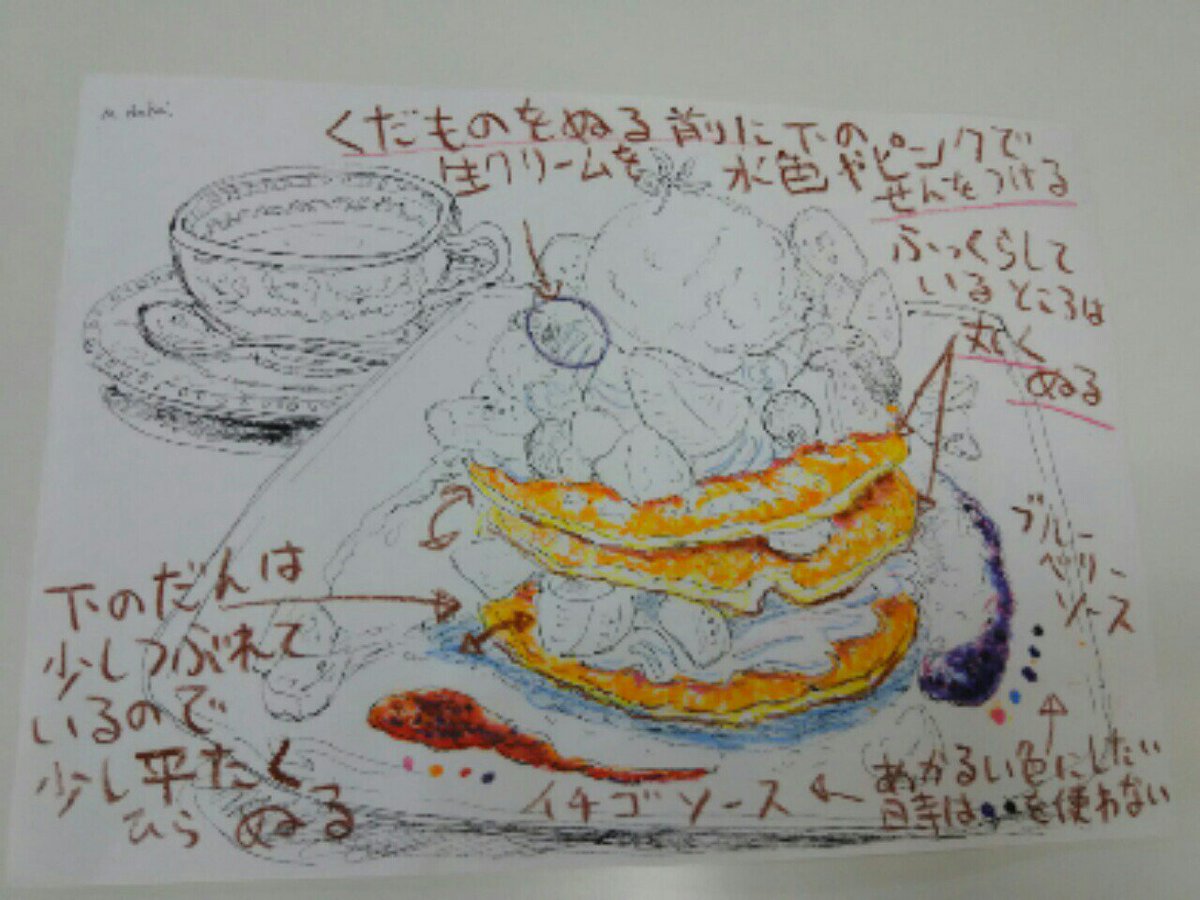 くだものをぬる前に下の
生クリームを水色やピンクで
せんをつける
ふっくらして
いるところは
丸く
ぬる
ブルー
ベリー
ソース
下のだんは
少しつぶれて
いるので
少し平たく
ひら ぬる
イチゴソース
あかるい色にしたい
時は を使わない